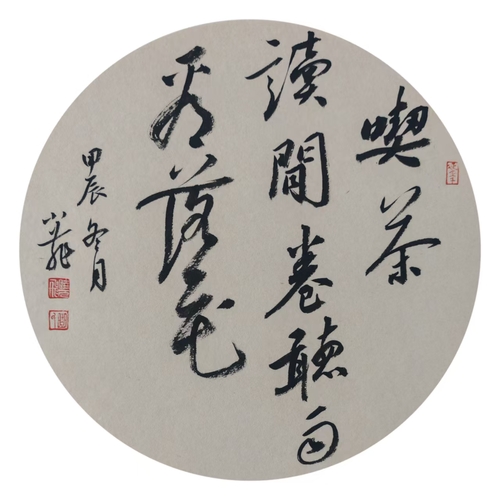 喫茶
讀閒卷聽雨
看落花
甲辰冬月